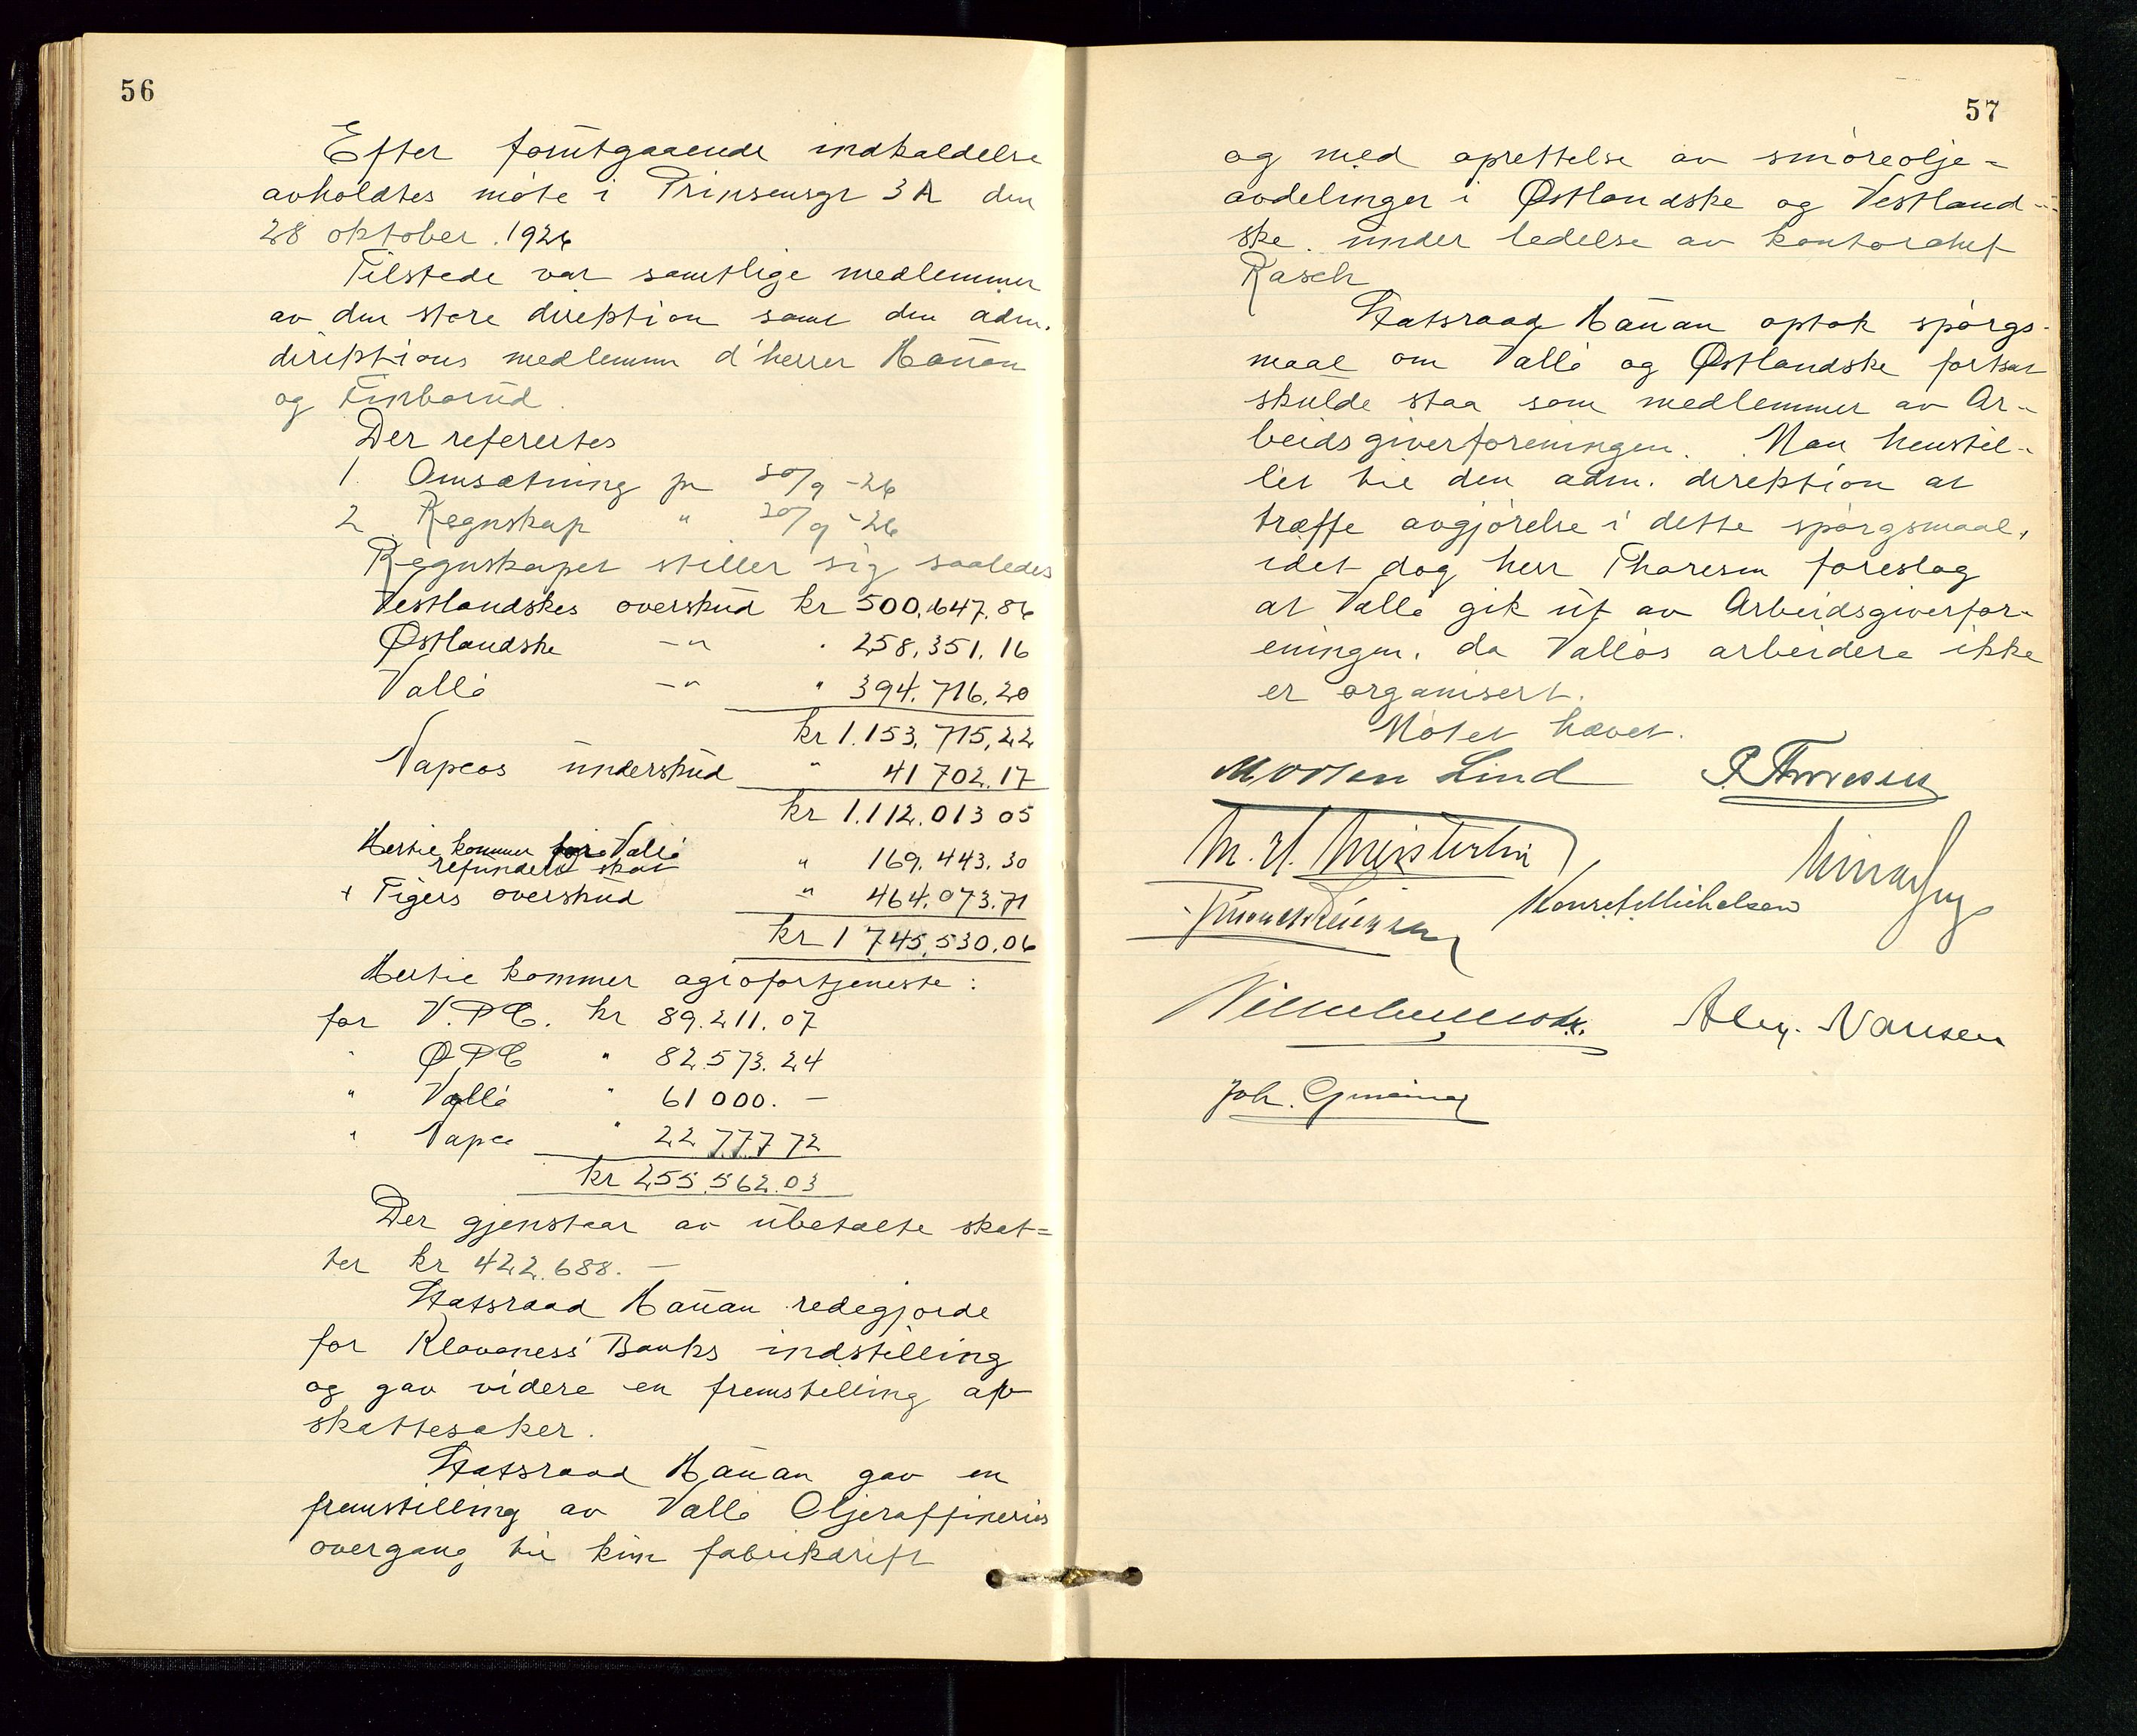 56
Efter forutgaaende indkaldelse
avholdtes møte i Prinsensgt 3A den
28 oktober 1926
Tilstede var samtlige medlemmer
av den store direktion samt den adm.
direktions medlemmer d'herrer Hauan
og Finborud.
Der refertes
1. Omsætning pr 30/9 -26
2 Regnskap " 30/9 -26
Regnskapet stiller sig saaledes
Vestlandskes overskud kr 500.647.86
Østlandske -"- " 258.351.16
Vallø -"- " 394.716.20
kr 1.153.715,22
Napcos underskud " 41 702.17
kr 1.112.013 05
Hertil kommer Vallø
refundert skat " 169.443.30
+ Tigers overskud " 464.073.71
kr 1 745.530.06
Hertil kommer agiofortjeneste:
for V.P.C. kr 89.211.07
" Ø P C " 82.573.24
" Vallø " 61 000. —
" Napco " 22 777 72
kr 255.562.03
Der gjenstaar av ubetalte skat=
ter kr 422.688. —
Statsraad Hauan redegjorde
for Klaveness' Banks indstilling
og gav videre en fremstilling av
skattesaker.
Statsraad Hauan gav en
fremstilling av Vallø Oljeraffineries
overgang til kun fabrikdrift
57
og med oprettelse av smøreolje=
avdelinger i Østlandske og Vestland-
ske. under ledelse av kontorchef
Rasch
Statsraad Hauan optok spørgs-
maal om Vallø og Østlandske fortsat
skulde staa som medlemmer av Ar-
beidsgiverforeningen. Man henstil-
let til den adm. direktion at
træffe avgjørelse i dette spørgsmaal,
idet dog herr Thoresen foreslog
at Vallø gik ut av Arbeidsgiverfor-
eningen, da Valløs arbeidere ikke
er organisert.
Møtet hævet.
Morten Lind P. Thoresen
Konr. Michelsen
Alex. Nansen
Joh.